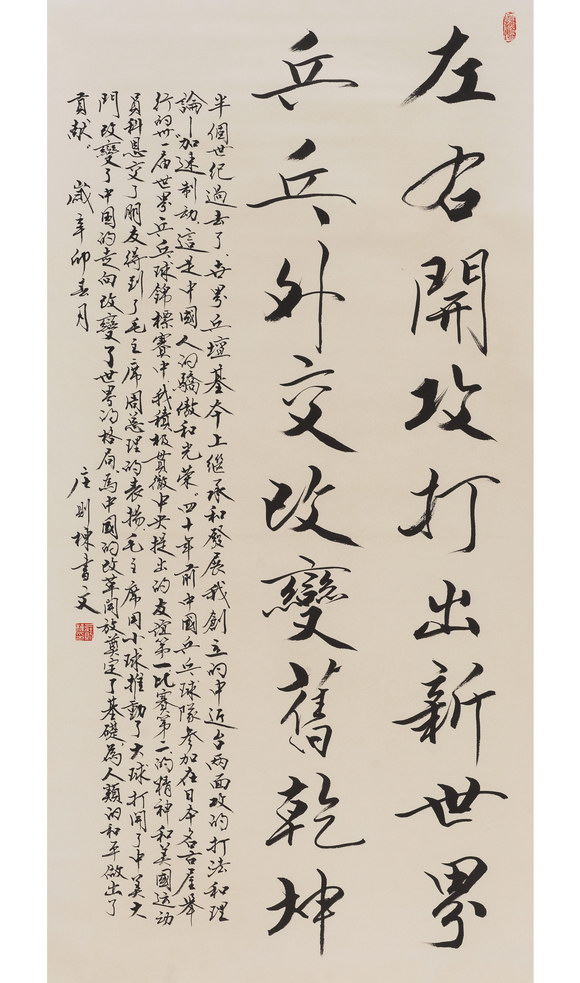 左右開攻打出新世界
乒乓外交改變舊乾坤
半個世纪過去了，世界乒壇基本上继承和發展我創立的中近台两面攻的打法和理
論—加速制动，這是中國人的驕傲和光荣。四十年前中國乒乓球隊参加在日本名古屋舉
行的卅一届世界乒乓球錦標赛中，我積极貫徹中央提出的友谊第一比赛第二的精神和美國运动
員科恩交了朋友，得到了毛主席周总理的表揚。毛主席用小球推動了大球，打開了中美大
門，改變了中国的走向，改變了世界的格局，爲中國的改革開放奠定了基礎，爲人類的和平做出了
貢献。 歲辛卯春月
庄則棟書文